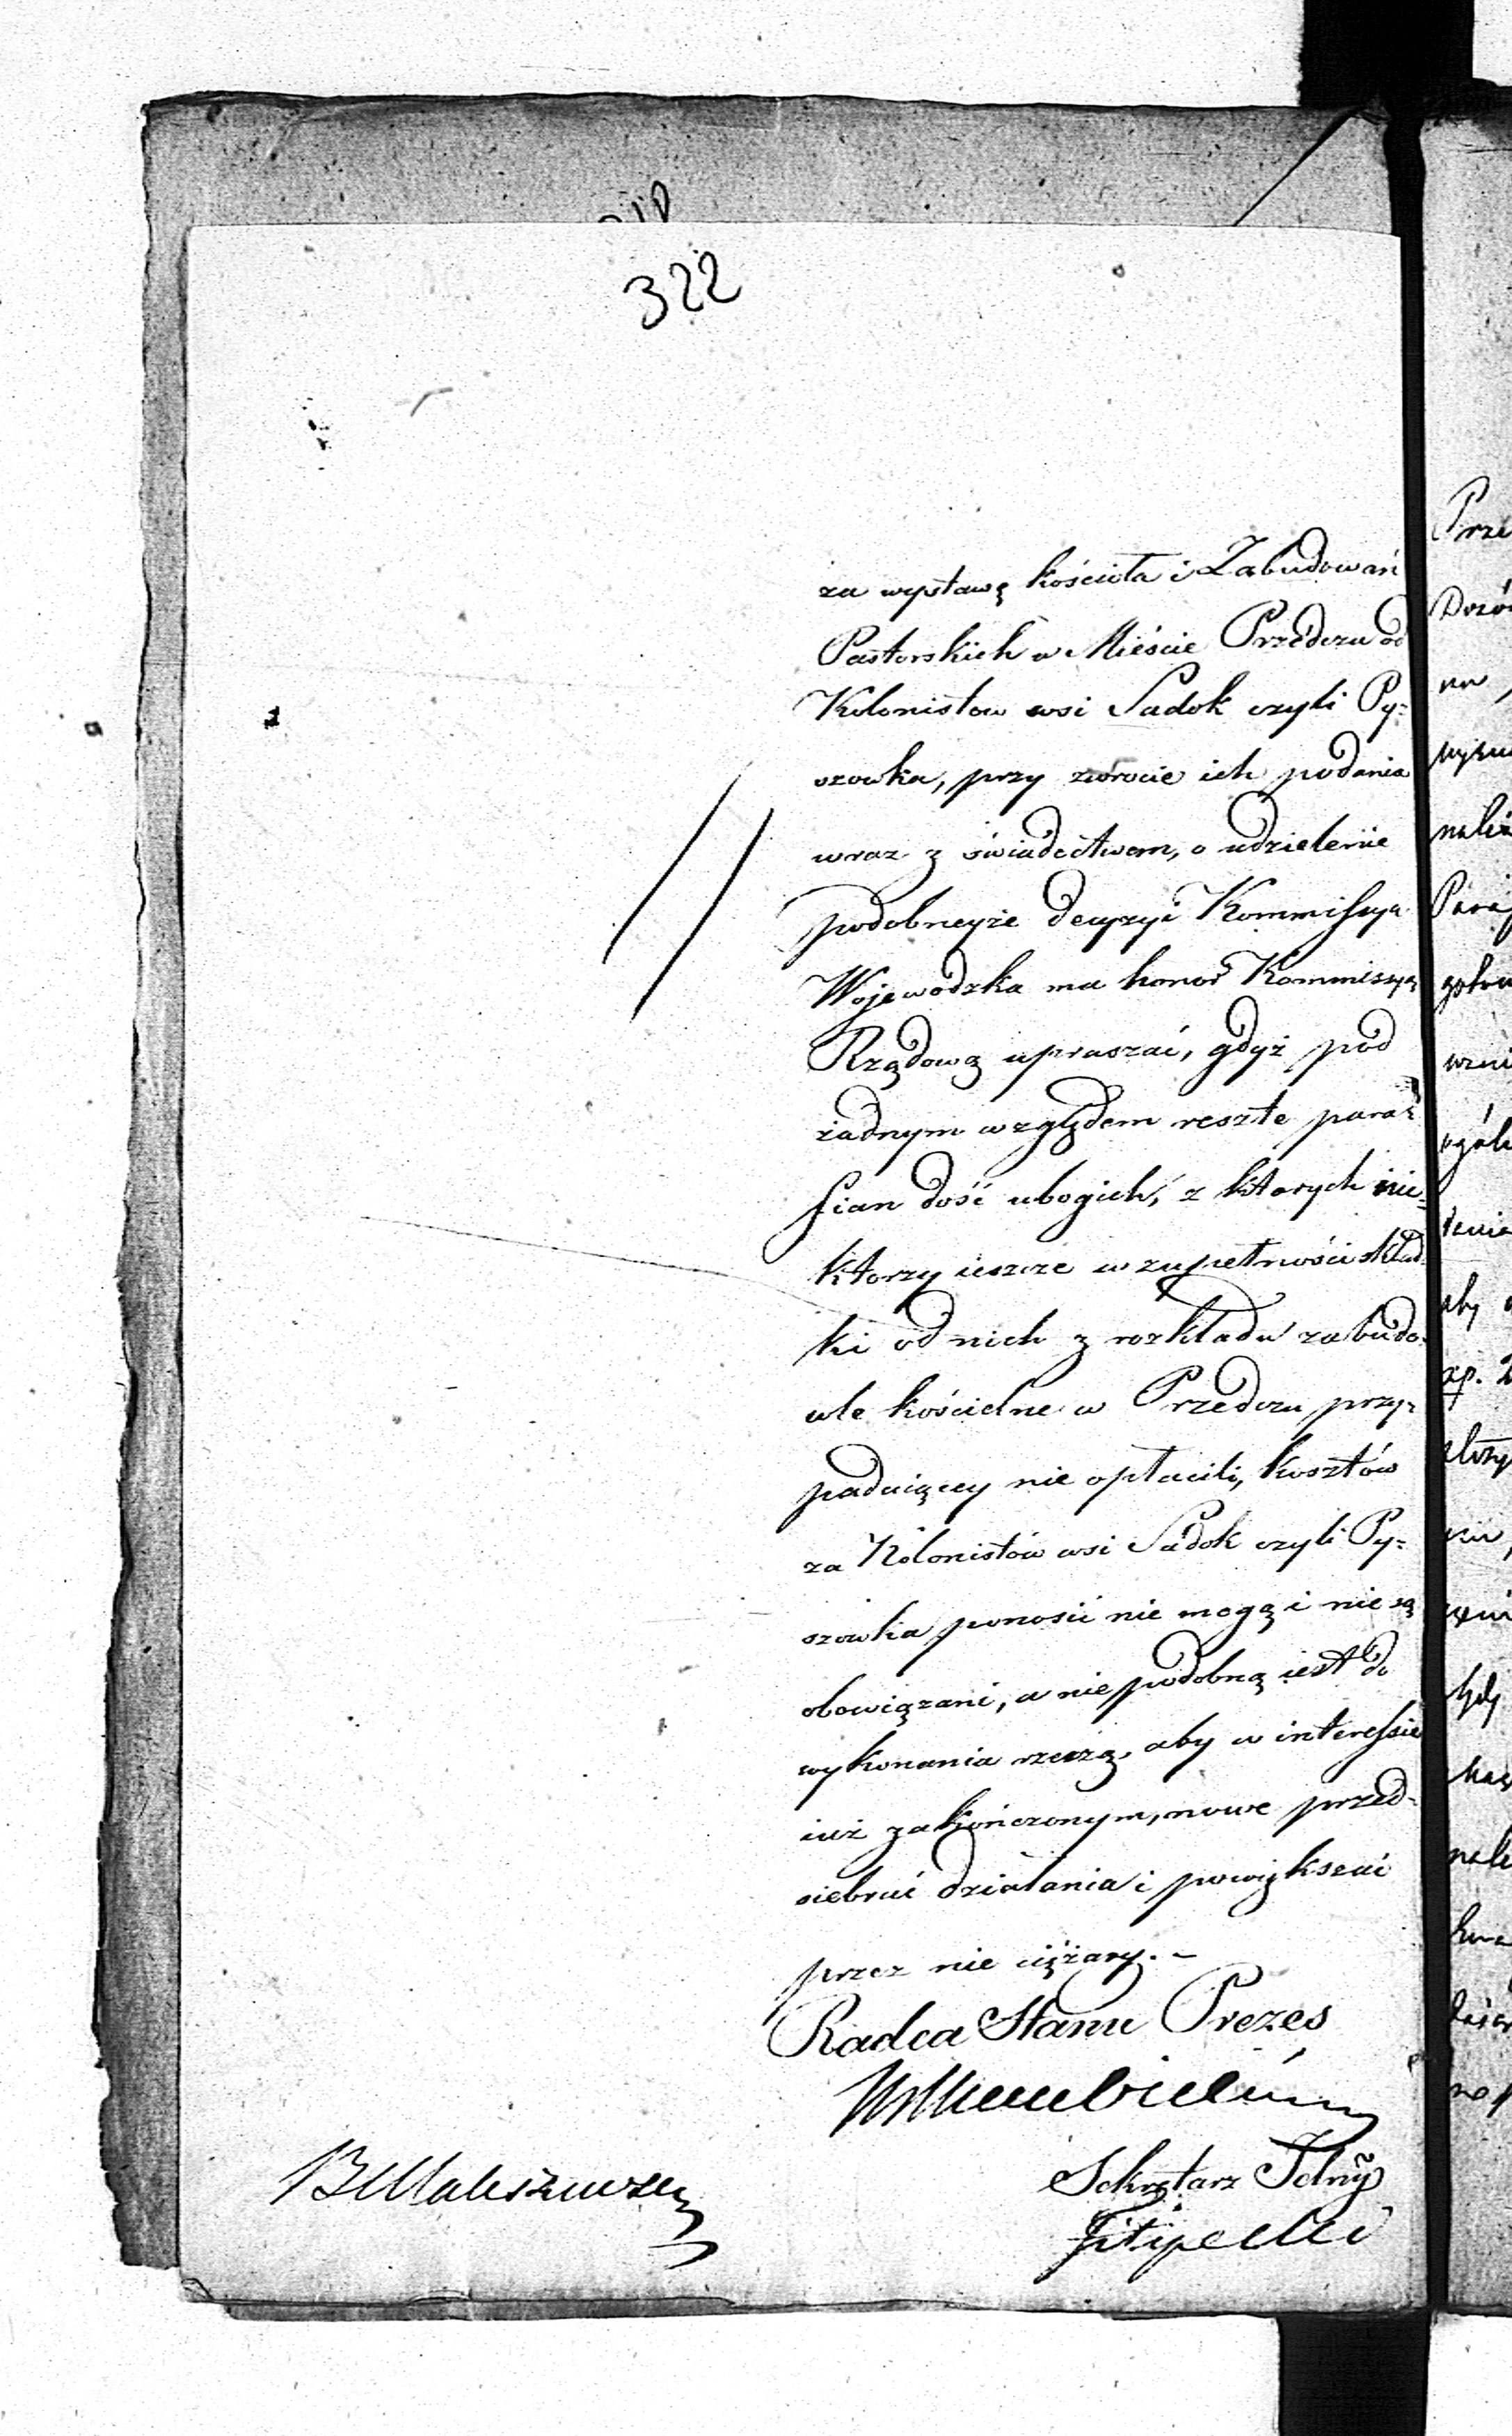 322
za wystawę kościoła i Zabudowań
Pastorskich w Mieście Przedczu od
Kolonistow wsi Sadok czyli Py=
szowka, przy zwrocie ich podania
wraz z świadectwem, o udzielenie
podobneyże decyzyi Kommissya
Wojewodzka ma honor Kommissyą
Rządową upraszać, gdyż pod
żadnym względem reszte para=
fian dość ubogich, z ktorych nie=
ktorzy ieszcze w zupełności skład=
ki od nich z rozkładu zabudo=
wle kościelne w Przedczu przy=
padaiącey nie opłacili, kosztów
za Kolonistów wsi Sadok czyli Py=
szowka ponosić nie mogą i nie są
obowiązani, a nie podobną iest do
wykonania rzeczą, aby w interessie
iuż zakończonym, nowe przed=
siebrać działania i powiększać
przez nie ciężary. -
Radca Stanu Prezes
Sekretarz Jlny